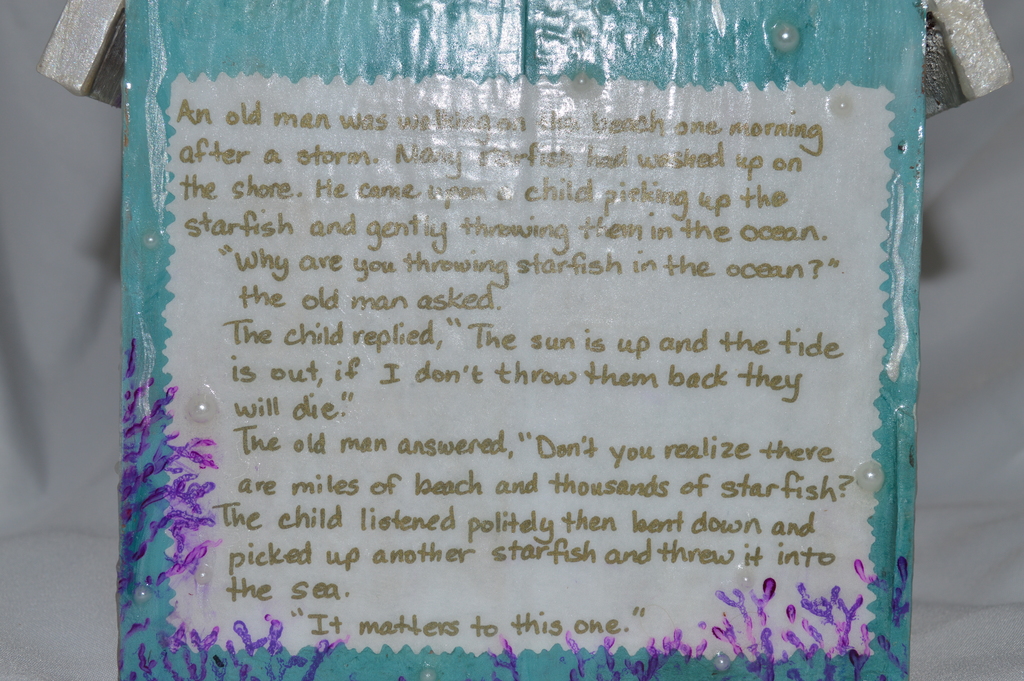 An old man was walking on the beach one morning
after a storm. Many starfish had washed up on
the shore. He came upon a child picking up the
starfish and gently throwing them in the ocean.
"Why are you throwing starfish in the ocean?"
the old man asked.
The child replied, "The sun is up and the tide
is out, if I don't throw them back they
will die."
The old man answered, "Don't you realize there
are miles of beach and thousands of starfish?
The child listened politely then bent down and
picked up another starfish and threw it into
the sea.
"It matters to this one."